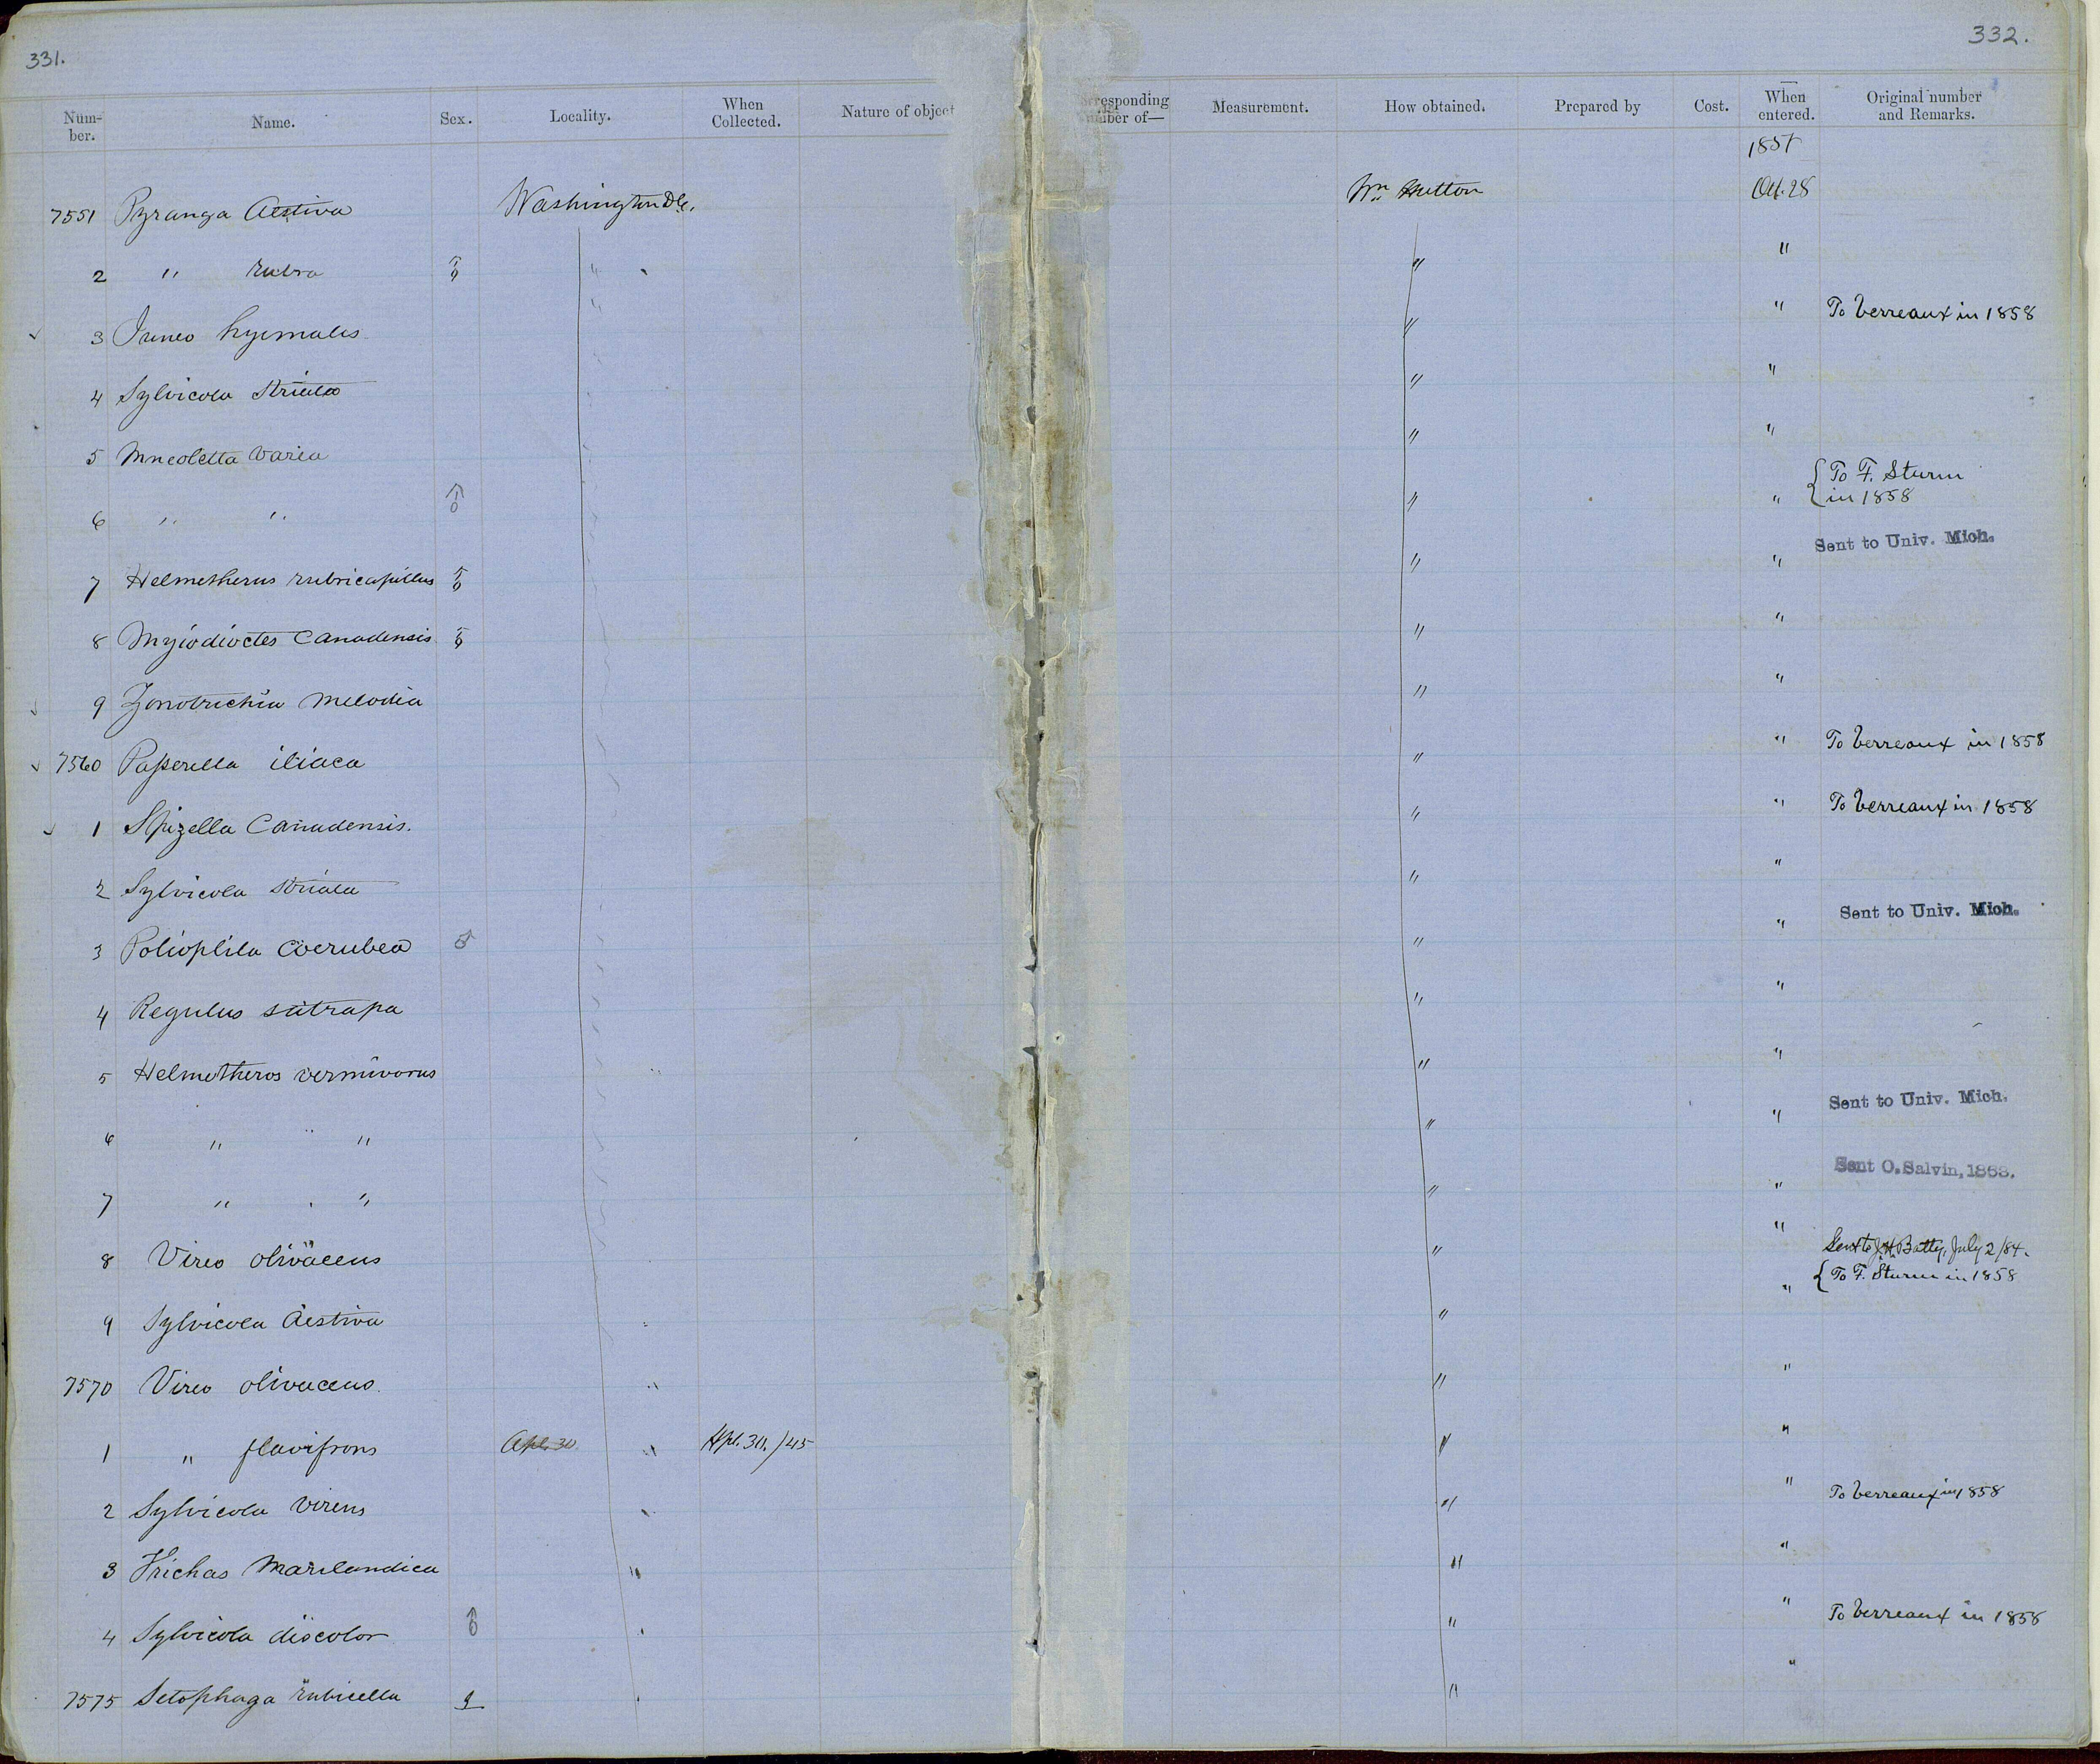 331.
332.
Num-
ber.
Name.
Sex.
Locality.
When
Collected.
Nature of object
rresponding
mber of—
Measurement.
How obtained.
Prepared by
Cost.
When
entered.
Original number
and Remarks.
1857
7551 Pyranga Aestiva Washington D.C. Wm Hutton Oct. 28
2 " rubra ♂ " " "
3 Junco hyemalis " " " To Verreaux in 1858
4 Sylvicola striata " "
5 Mneoletta varia " "
6 " " ♂ " " { To F. Sturm in 1858
7 Helmetherus rubricapillus ♂ " " Sent to Univ. Mich.
8 Myiodioctes Canadensis ♂ " "
9 Zonotrichia melodia " "
7560 Passerella iliaca " " To Verreaux in 1858
1 Spizella Canadensis. " " To Verreaux in 1858
2 Sylvicola striata " "
3 Polioptila coerulea ♂ " " Sent to Univ. Mich.
4 Regulus satrapa " "
5 Helmotheros vermivorus " " "
6 " " " " Sent to Univ. Mich.
7 " " " " Sent O. Salvin, 1868.
8 Vireo olivaceus " " Sent to J.H. Batty, July 2/84.
9 Sylvicola aestiva " " " { To F. Sturm in 1858
7570 Vireo olivaceus. " " "
1 " flavifrons Apl. 30 " Apl. 30. /45 " "
2 Sylvicola virens " " " To Verreaux in 1858
3 Trichas Marilandica " " "
4 Sylvicola discolor ♂ " " " To Verreaux in 1858
7575 Setophaga ruticilla ♀ " " "